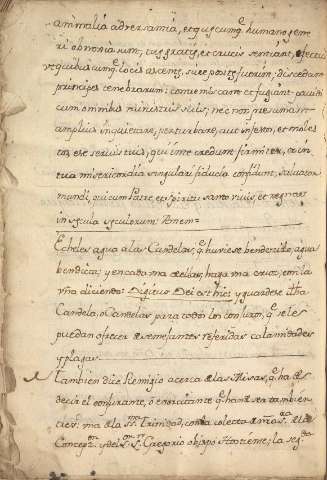 animalia adversantia, et quæcumq. humano gene
ri obnoxia sunt, tuis gratijs, et
et quibuscumq. locis discedant
principes tenebrarum: contremiscant et fugiant
cum omnibus ministris suis; nec non præsumant
amplius inquietare, perturbare, aut infestare, et moles
tare servis tuis, qui in te credunt firmiter, et in
tua misericordia singulari fiducia confidunt, salvator
mundi, qui cum Patre, et spiritu santo vivis, et regnas
in sęcula sęculorum: Amen=
Echeles agua a las Candelas, q. huviese bendecido, agua
bendita; y en cada una de ellas, haga una cruz, con la
uña diciendo: Digitus Dei est hic, y guardese
Candela, o Candelas para todos los conjuros, q. se les
puedan ofrecer de semejantes referidas calamidades
y plagas.
Tambien dice Remigio acerca de las Misas, q. ha de
decir el conjurante, o exorcitante q. han de ser tambien
tres: una de la SS.ma Trinidad, con la colecta de
Concepn. de Sn. Gregorio obispo la seg.da